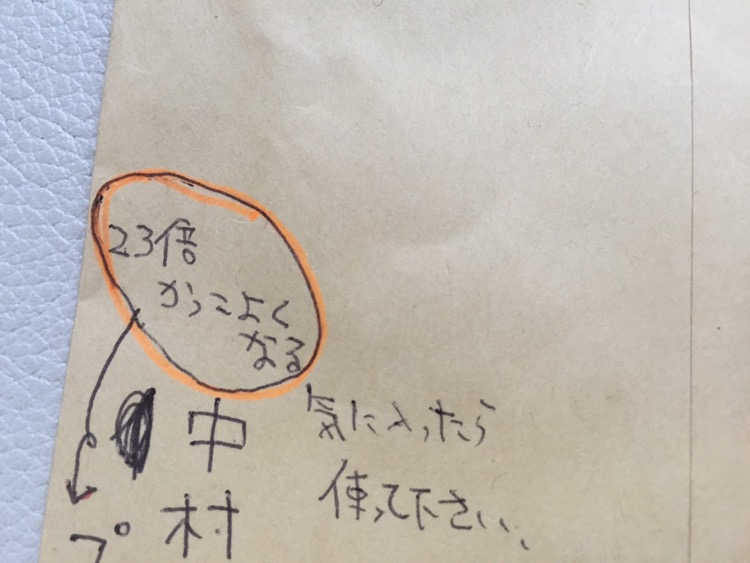 23倍
かっこよく
なる
中村
気に入ったら
使って下さい、
プ